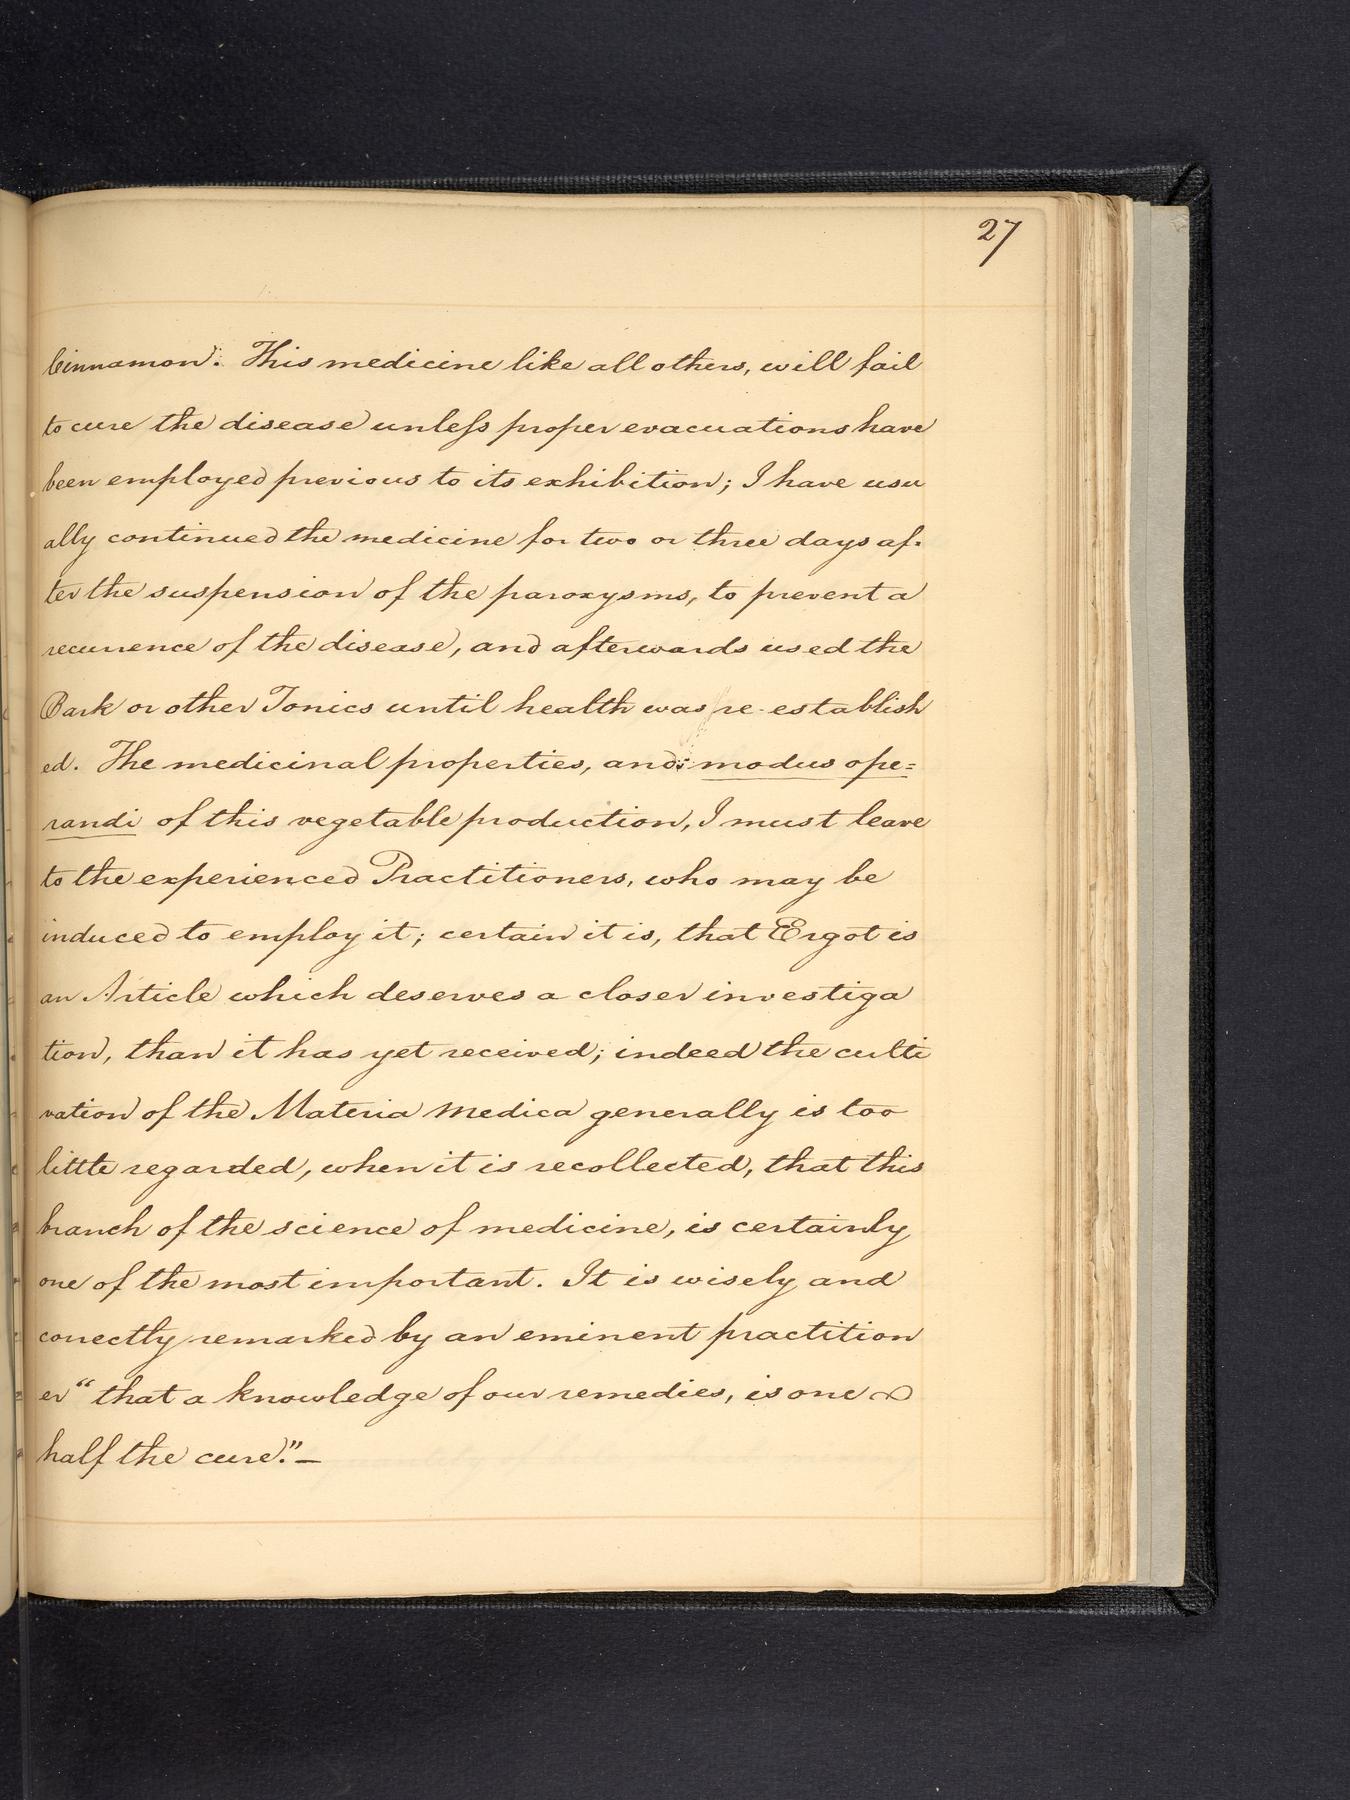 27
Cinnamon. This medicine like all others, will fail
to cure the disease unless proper evacuations have
been employed previous to its exhibition; I have usu
ally continued the medicine for two or three days af-
ter the suspension of the paroxysms, to prevent a
recurrence of the disease, and afterwards used the
Bark or other Tonics until health was re-establish
ed. The medicinal properties, and modus ope=
randi of this vegetable production, I must leave
to the experienced Practitioners, who may be
induced to employ it; certain it is, that Ergot is
an Article which deserves a closer investiga
tion, than it has yet received; indeed the culti
vation of the Materia Medica generally is too
little regarded, when it is recollected, that this
branch of the science of medicine, is certainly
one of the most important. It is wisely and
correctly remarked by an eminent practition
er "that a knowledge of our remedies, is one
half the cure."—